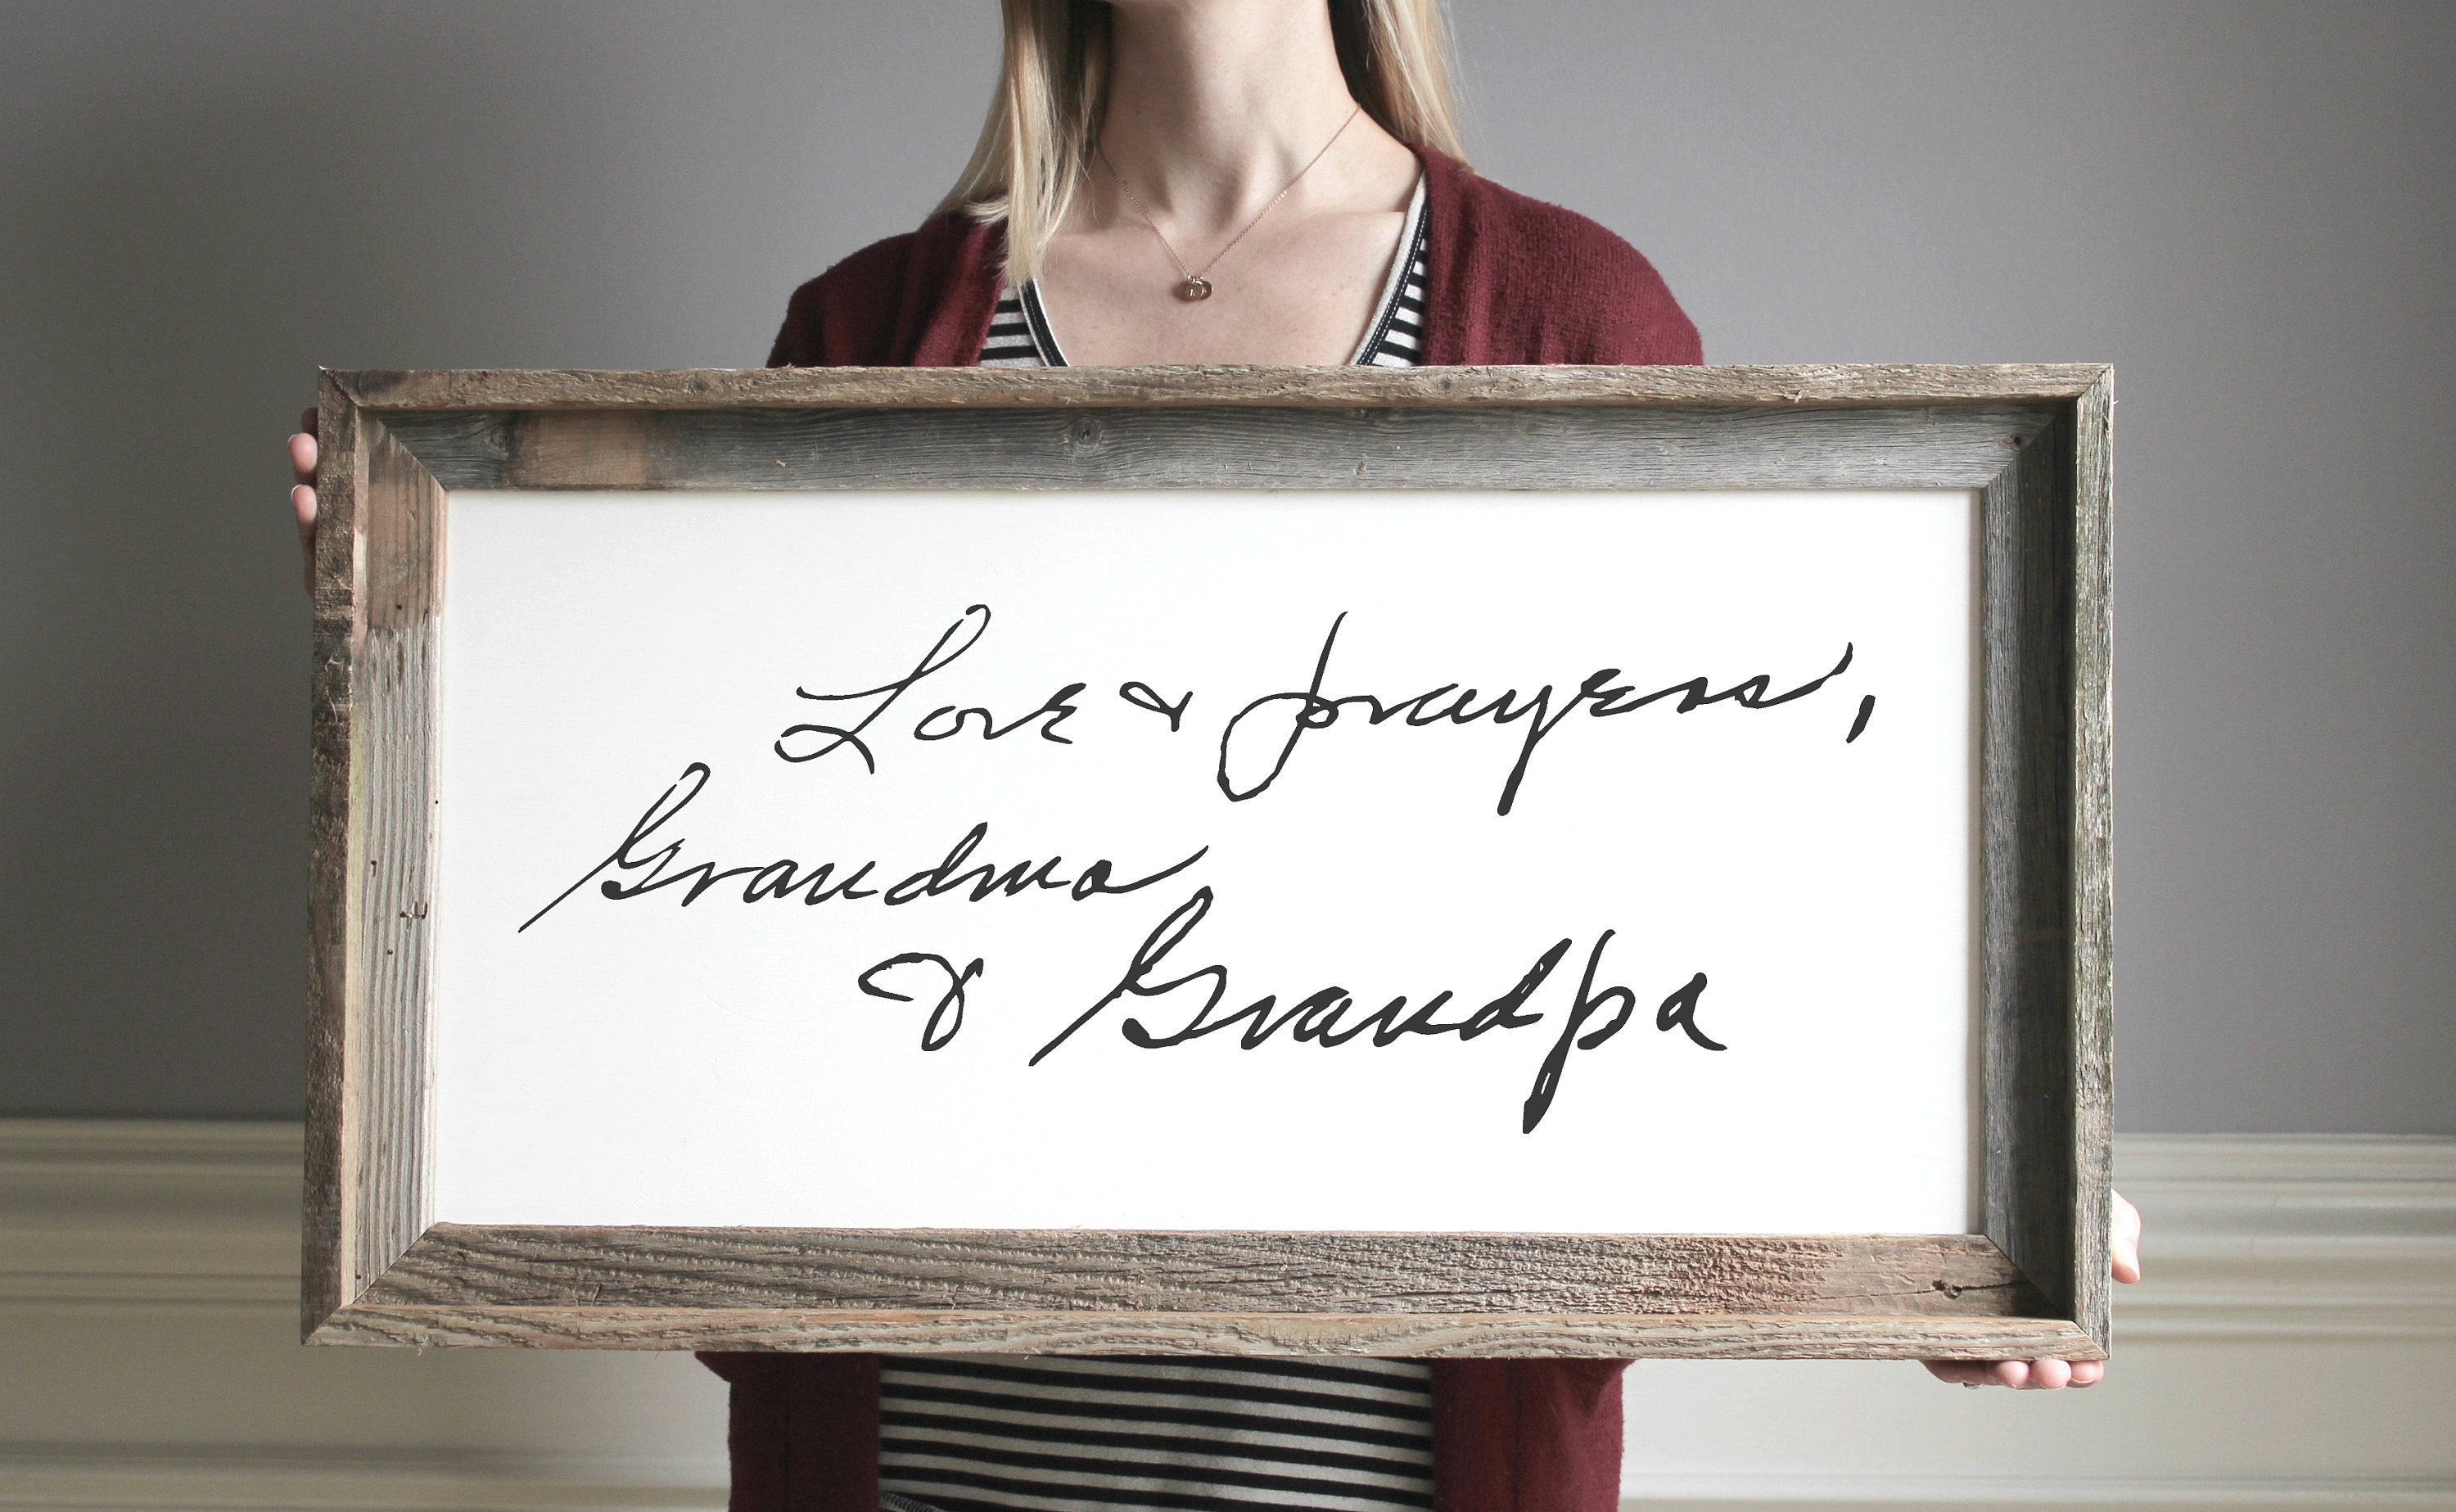 Love & prayers,
Grandma
& Grandpa